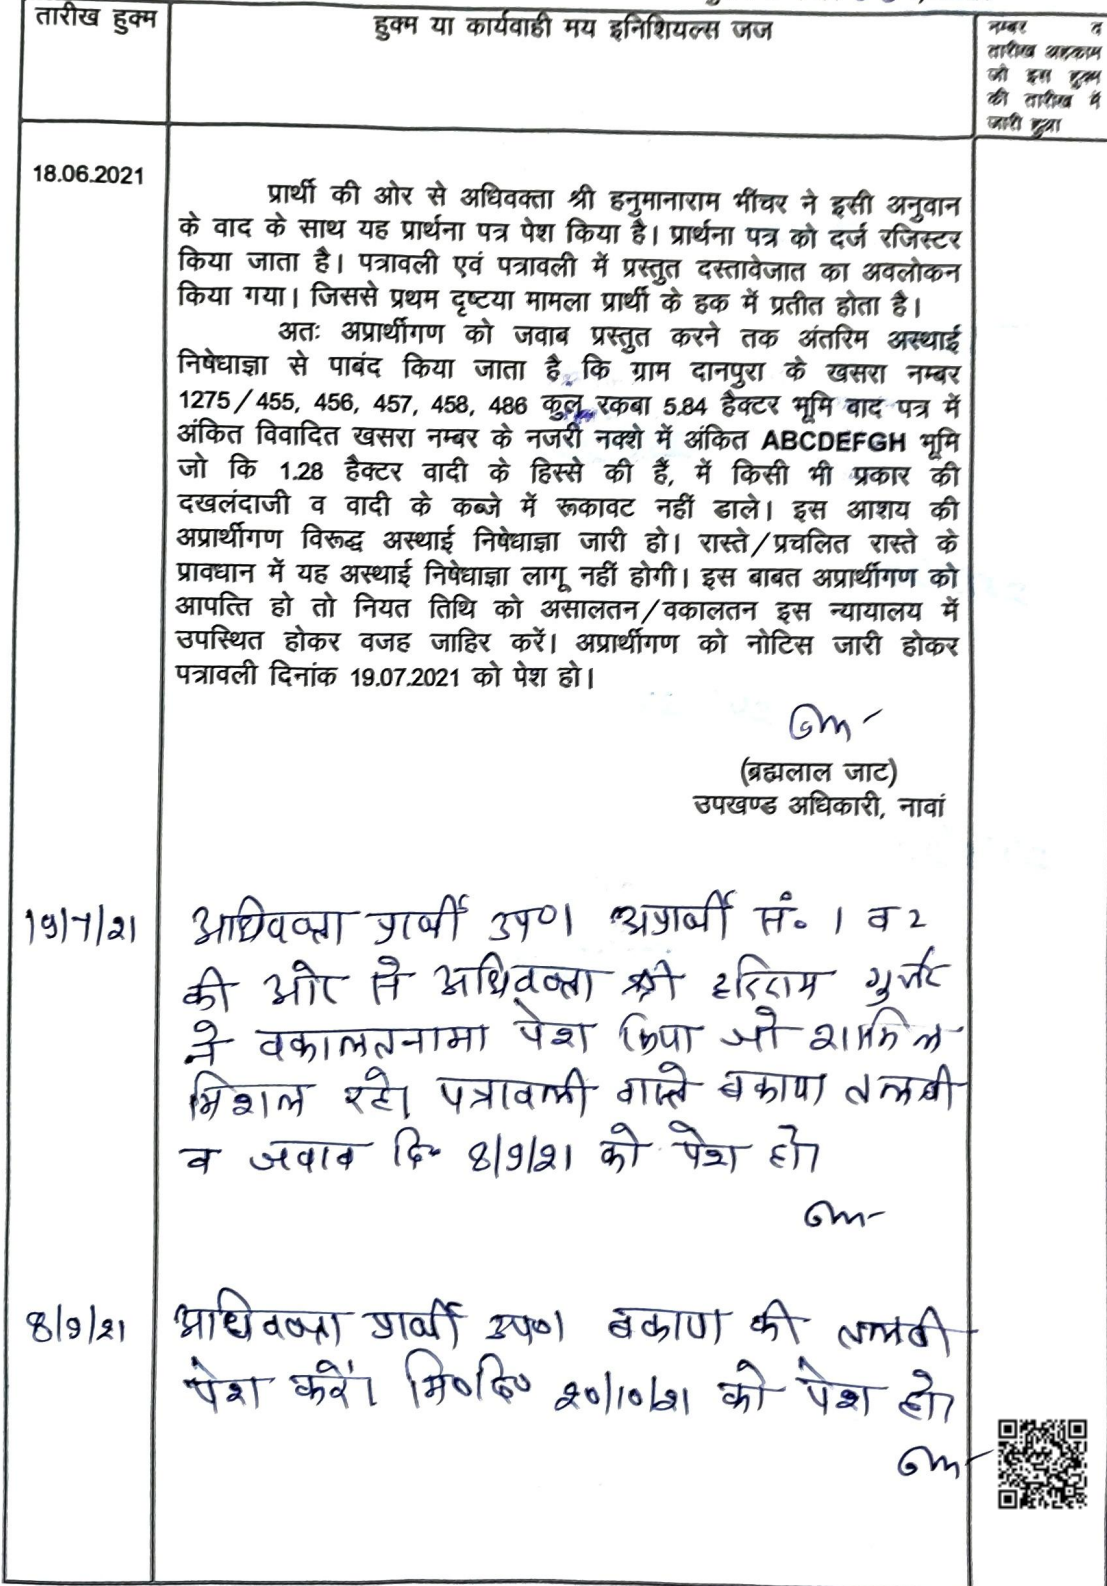 तारीख हुक्म
हुक्म या कार्यवाही मय इनिशियल्स जज
नम्बर व
तारीख अहकाम
जो इस हुक्म
की तारीख में
जारी हुआ
18.06.2021
प्रार्थी की ओर से अधिवक्ता श्री हनुमानाराम भींचर ने इसी अनुवान
के वाद के साथ यह प्रार्थना पत्र पेश किया है। प्रार्थना पत्र को दर्ज रजिस्टर
किया जाता है। पत्रावली एवं पत्रावली में प्रस्तुत दस्तावेजात का अवलोकन
किया गया। जिससे प्रथम दृष्टया मामला प्रार्थी के हक में प्रतीत होता है।
अतः अप्रार्थीगण को जवाब प्रस्तुत करने तक अंतरिम अस्थाई
निषेधाज्ञा से पाबंद किया जाता है कि ग्राम दानपुरा के खसरा नम्बर
1275/455, 456, 457, 458, 486 कुल रकबा 5.84 हैक्टर भूमि वाद पत्र में
अंकित विवादित खसरा नम्बर के नजरी नक्शे में अंकित ABCDEFGH भूमि
जो कि 1.28 हैक्टर वादी के हिस्से की हैं, में किसी भी प्रकार की
दखलंदाजी व वादी के कब्जे में रूकावट नहीं डाले। इस आशय की
अप्रार्थीगण विरूद्ध अस्थाई निषेधाज्ञा जारी हो। रास्ते/प्रचलित रास्ते के
प्रावधान में यह अस्थाई निषेधाज्ञा लागू नहीं होगी। इस बाबत अप्रार्थीगण को
आपत्ति हो तो नियत तिथि को असालतन/वकालतन इस न्यायालय में
उपस्थित होकर वजह जाहिर करें। अप्रार्थीगण को नोटिस जारी होकर
पत्रावली दिनांक 19.07.2021 को पेश हो।
(ब्रह्मलाल जाट)
उपखण्ड अधिकारी, नावां
19/7/21
अधिवक्ता प्रार्थी उप०। अप्रार्थी सं. 1 व 2
की ओर से अधिवक्ता श्री हरिराम गुर्जर
ने वकालतनामा पेश किया जो शामिल
मिशल रहे। पत्रावली वास्ते बकाया तलबी
व जवाब दि॰ 8/9/21 को पेश हो।
8/9/21
अधिवक्ता प्रार्थी उप०। बकाया की तलबी
पेश करें। मि०दि० 20/10/21 को पेश हो।